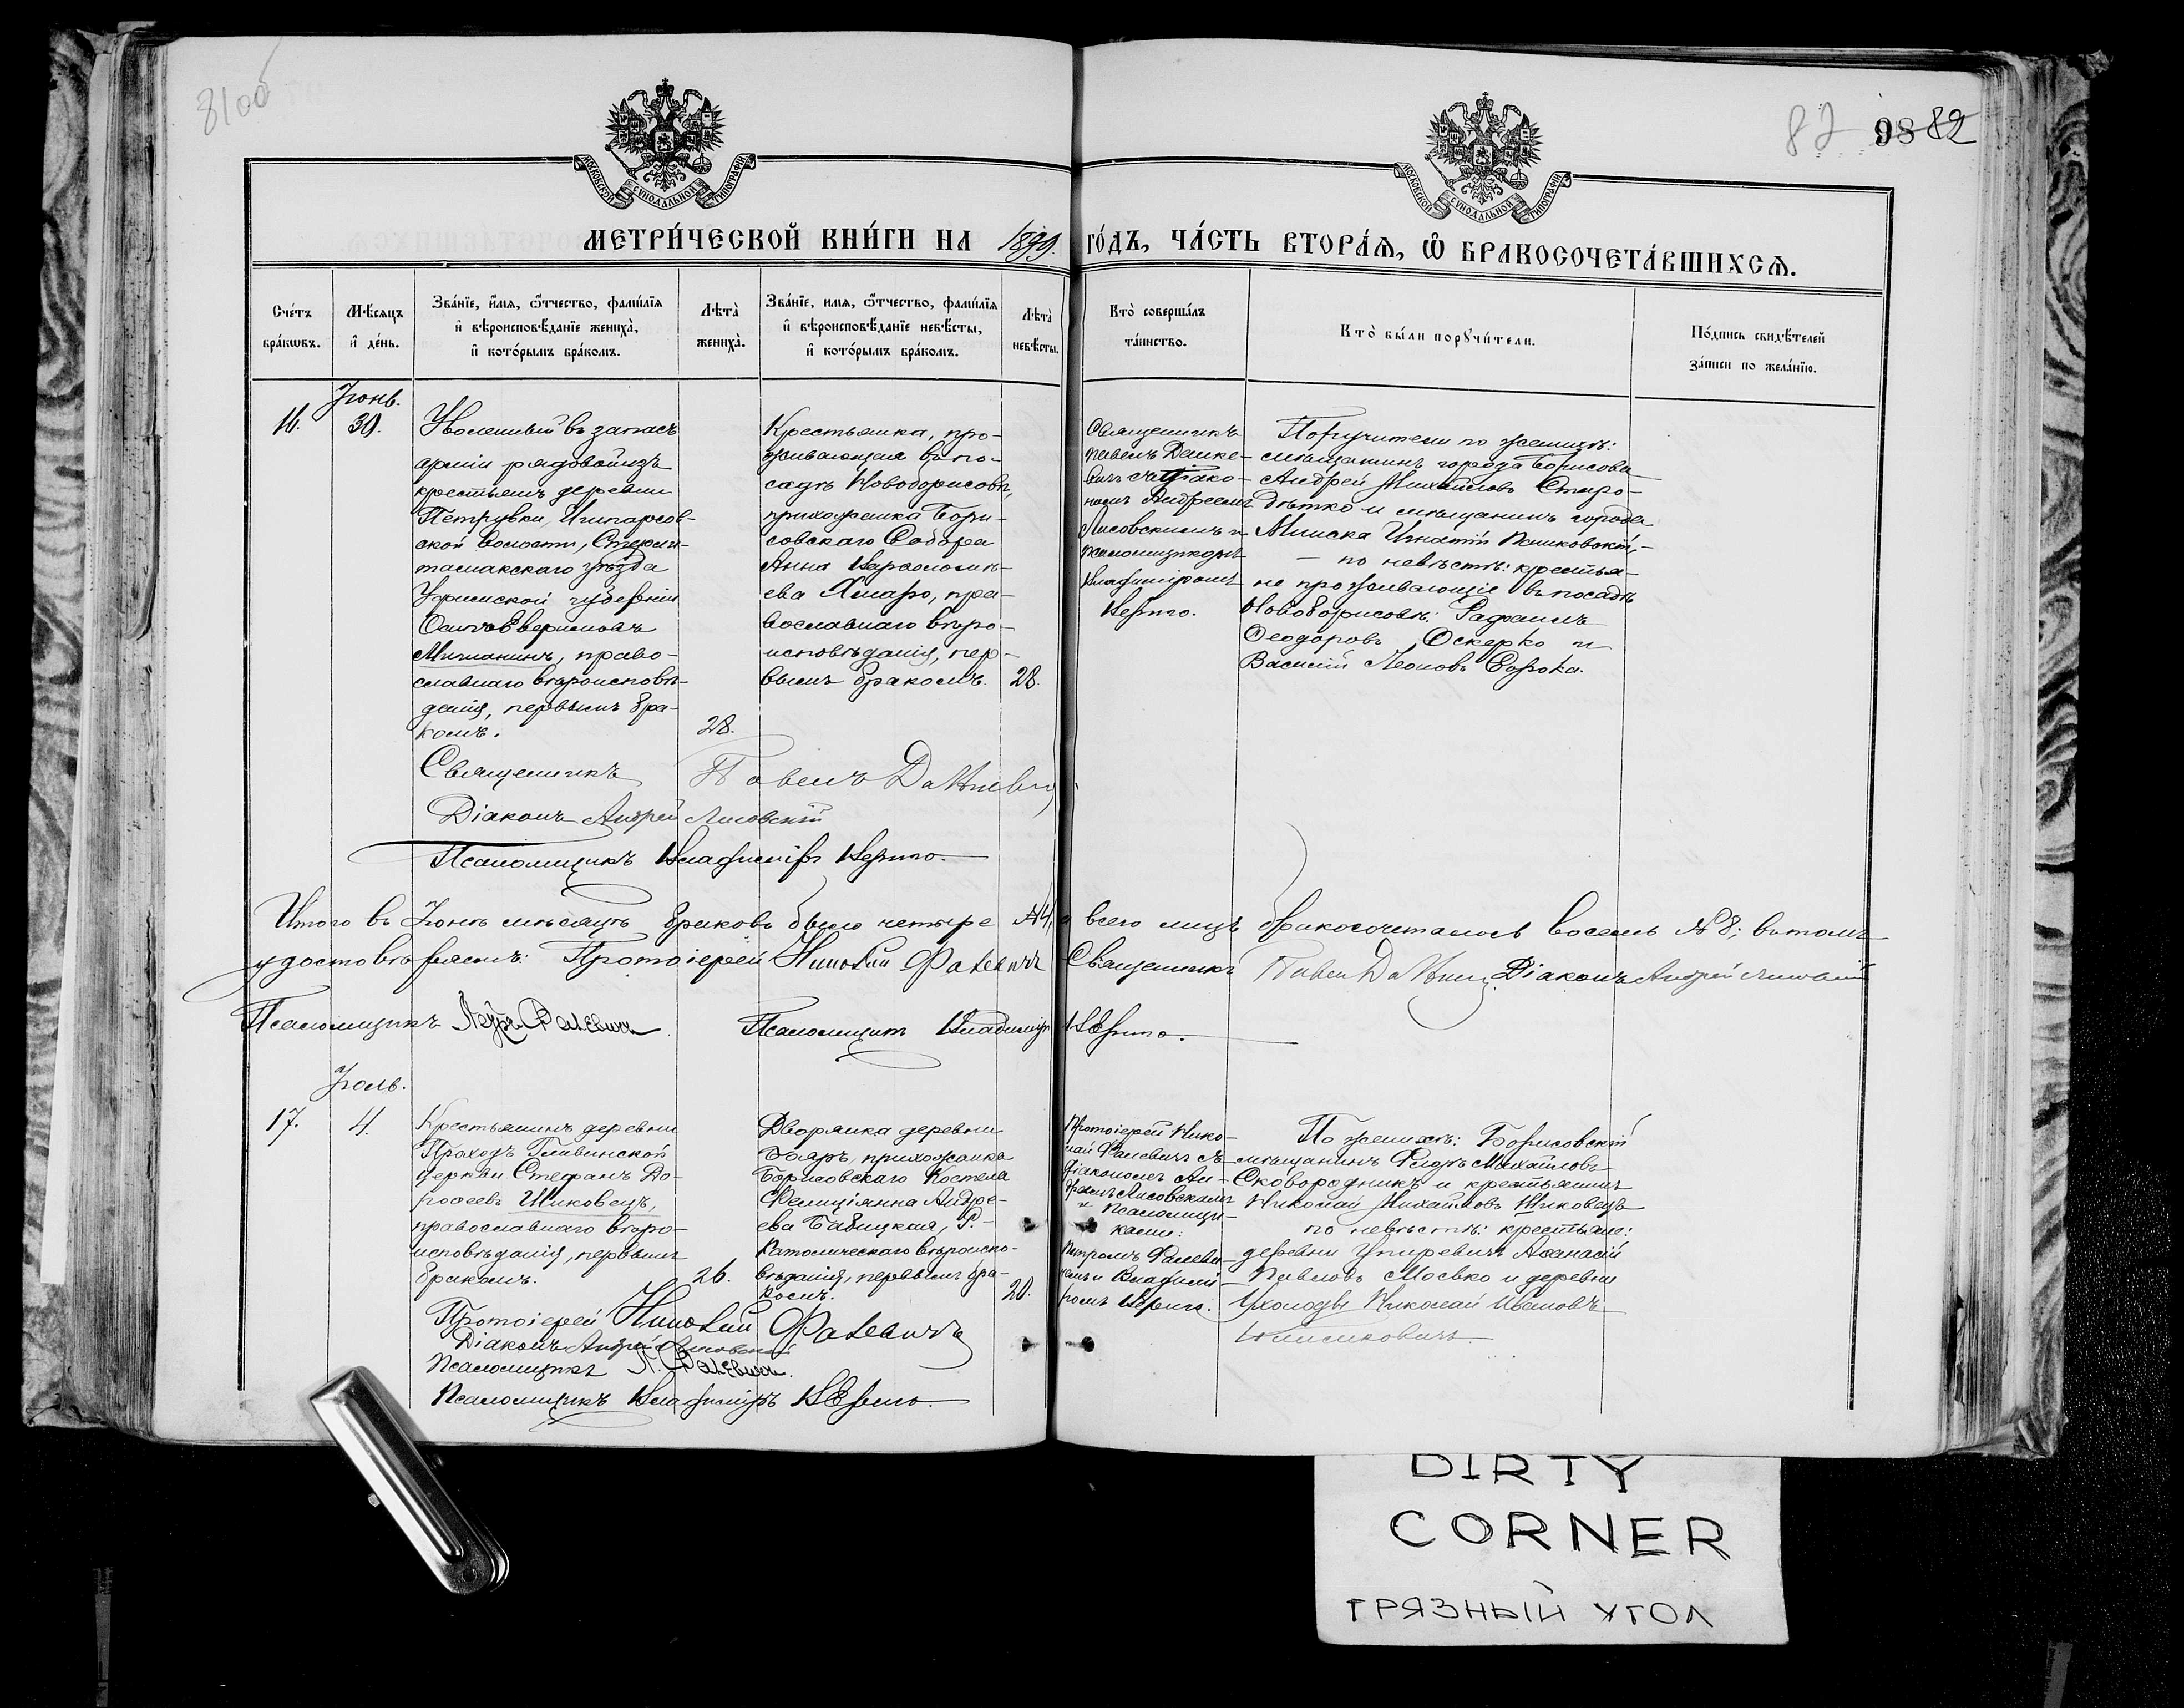 81об
82 98 82
МОСКОВСКОЙ СУНОДАЛЬНОЙ ТИПОГРАФІИ
МОСКОВСКОЙ СУНОДАЛЬНОЙ ТИПОГРАФІИ
МЕТРИ́ЧЕСКОЙ КНИ́ГИ НА 1899. ГО́ДЪ, ЧА́СТЬ ВТОРА́Я, Ѿ БРАКОСОЧЕТА́ВШИХСЯ.
Сче́тъ
бра́кωвъ.
Мѣ́сяцъ
и҆ де́нь.
Зва́нїе, и҆́мя, ѻ҆́тчество, фами́лїя
и҆ вѣроисповѣ́данїе жениха̀,
и҆ кото́рымъ бра́комъ.
Лѣ́та̀
жениха̀.
Зва́нїе, имя, ѻ҆́тчество, фами́лїя
и҆ вѣроисповѣ́данїе невѣ́сты,
и҆ кото́рымъ бра́комъ.
Лѣ́та̀
невѣ́сты.
Кто̀ соверша́лъ
та́инство.
Кто̀ бы́ли порꙋчи́тели.
По́дпись свидѣ́телей
за́писи по жела́нїю.
Іюнь.
16.
30.
Уволенный въ запасъ
арміи рядовой изъ
крестьянъ деревни
Петровки, Ишпарсов-
ской волости, Стерли-
тамакскаго уѣзда
Уфимской губерніи
Осипъ Еверимовъ
Мишанинъ, право-
славнаго вѣроисповѣ-
данія, первымъ бра-
комъ.
28.
Крестьянка, про-
живающая въ по-
садѣ Новоборисовѣ,
прихожанка Бори-
совскаго Собора
Анна Варѳоломѣ-
ева Хмаро, пра-
вославнаго вѣро-
исповѣданія, пер-
вымъ бракомъ.
28.
Священникъ
Павелъ Данке-
вичъ съ Діако-
номъ Андреемъ
Лисовскимъ и
псаломщикомъ
Владиміромъ
Вериго.
Поручители по женихѣ:
мѣщанинъ города Борисова
Андрей Михайловъ Старо-
дѣтко и мѣщанинъ города
Минска Игнатій Пашковскій,
по невѣстѣ: крестья-
не проживающіе въ посадѣ
Новоборисовѣ: Рафаилъ
Ѳеодоровъ Оскерко и
Василій Леоновъ Сорока.
Священникъ Павелъ Данкевич
Діаконъ Андрей Лисовскій
Псаломщикъ Владиміръ Вериго.
Итого въ Іюнѣ мѣсяцѣ браковъ было четыре №4, а всего лицъ бракосочеталось восемь №8; въ томъ
удостовѣряемъ: Протоіерей Николай Фалевичъ Священникъ Павел Данкевич Діаконъ Андрей Лисовскій
Псаломщикъ Петръ Фалевичъ. Псаломщикъ Владиміръ Вериго.
Іюль.
17.
4.
Крестьянинъ деревни
Проходъ Гливинской
церкви Стефанъ До-
роѳеевъ Шиковецъ,
православнаго вѣро-
исповѣданія, первымъ
бракомъ.
26.
Дворянка деревни
Бояръ, прихожанка
Борисовскаго Костела
Фелиціянна Андре-
ева Бабицкая, Р.-
Католическаго вѣроиспо-
вѣданія, первымъ бра-
комъ.
20.
Протоіерей Нико-
лай Фалевичъ съ
Діакономъ Ан-
дреемъ Лисовскимъ
и Псаломщи-
ками:
Петромъ Фалеви-
чемъ и Владимі-
ромъ Вериго.
По женихѣ: Борисовскій
мѣщанинъ Ѳедоръ Михайловъ
Сковородникъ и крестьянинъ
Николай Михайловъ Шиковецъ
по невѣстѣ: крестьяне:
деревни Упиревичъ Аѳанасій
Павловъ Мосько и деревни
Ухолоды Николай Ивановъ
Климковичъ.
Протоіерей Николай Фалевичъ
Діаконъ Андрей Лисовскій
Псаломщикъ П. Фалевичъ.
Псаломщикъ Владиміръ Вериго.
DIRTY
CORNER
ГРЯЗНЫЙ УГОЛ